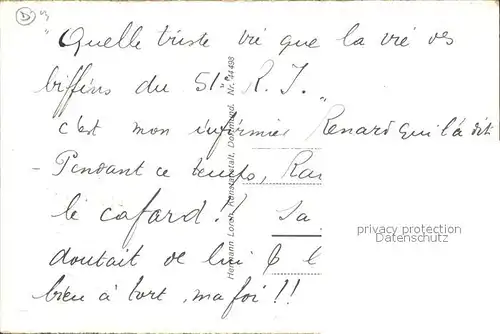 "Quelle triste vie que la vie des
biffins du 51e R. I. "
c'est mon infirmier Renard qui l'a dit
- Pendant ce temps,
le cafard !! Sa
doutait de lui
bien à tort, ma foi !!
Hermann Lorch, Kunstanstalt, Dortmund. Nr. 44498
privacy protection
Datenschutz